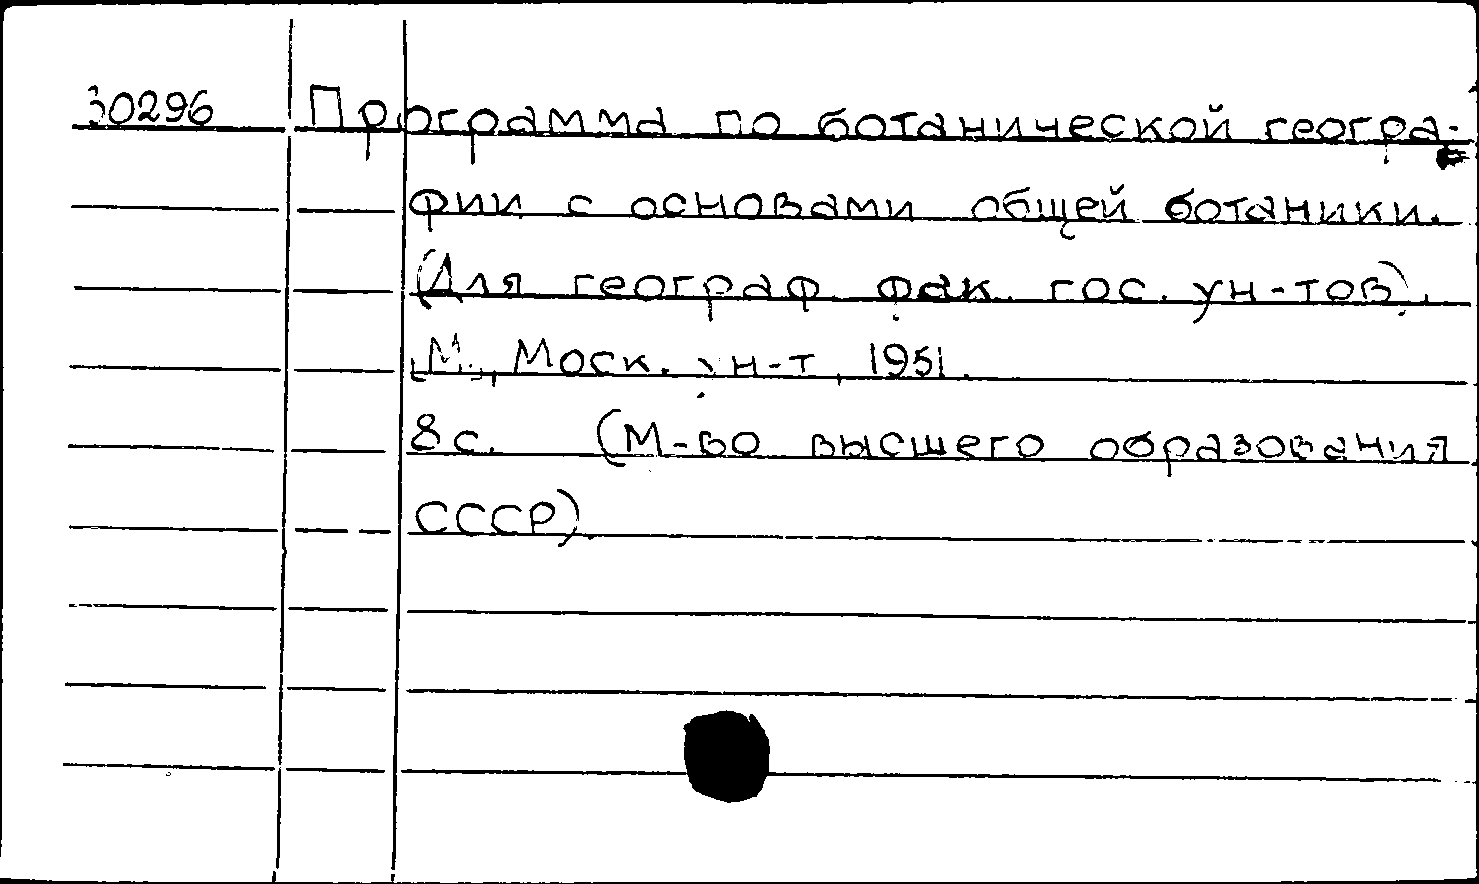 30296 Программа по ботанической геогра-
фии с основами общей ботаники.
(Для географ. фак. гос. ун-тов).
[М.], Моск. ун-т, 1951.
8 с. (М-во высшего образования
СССР).